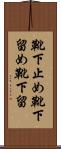 靴下止め靴下
留め靴下留